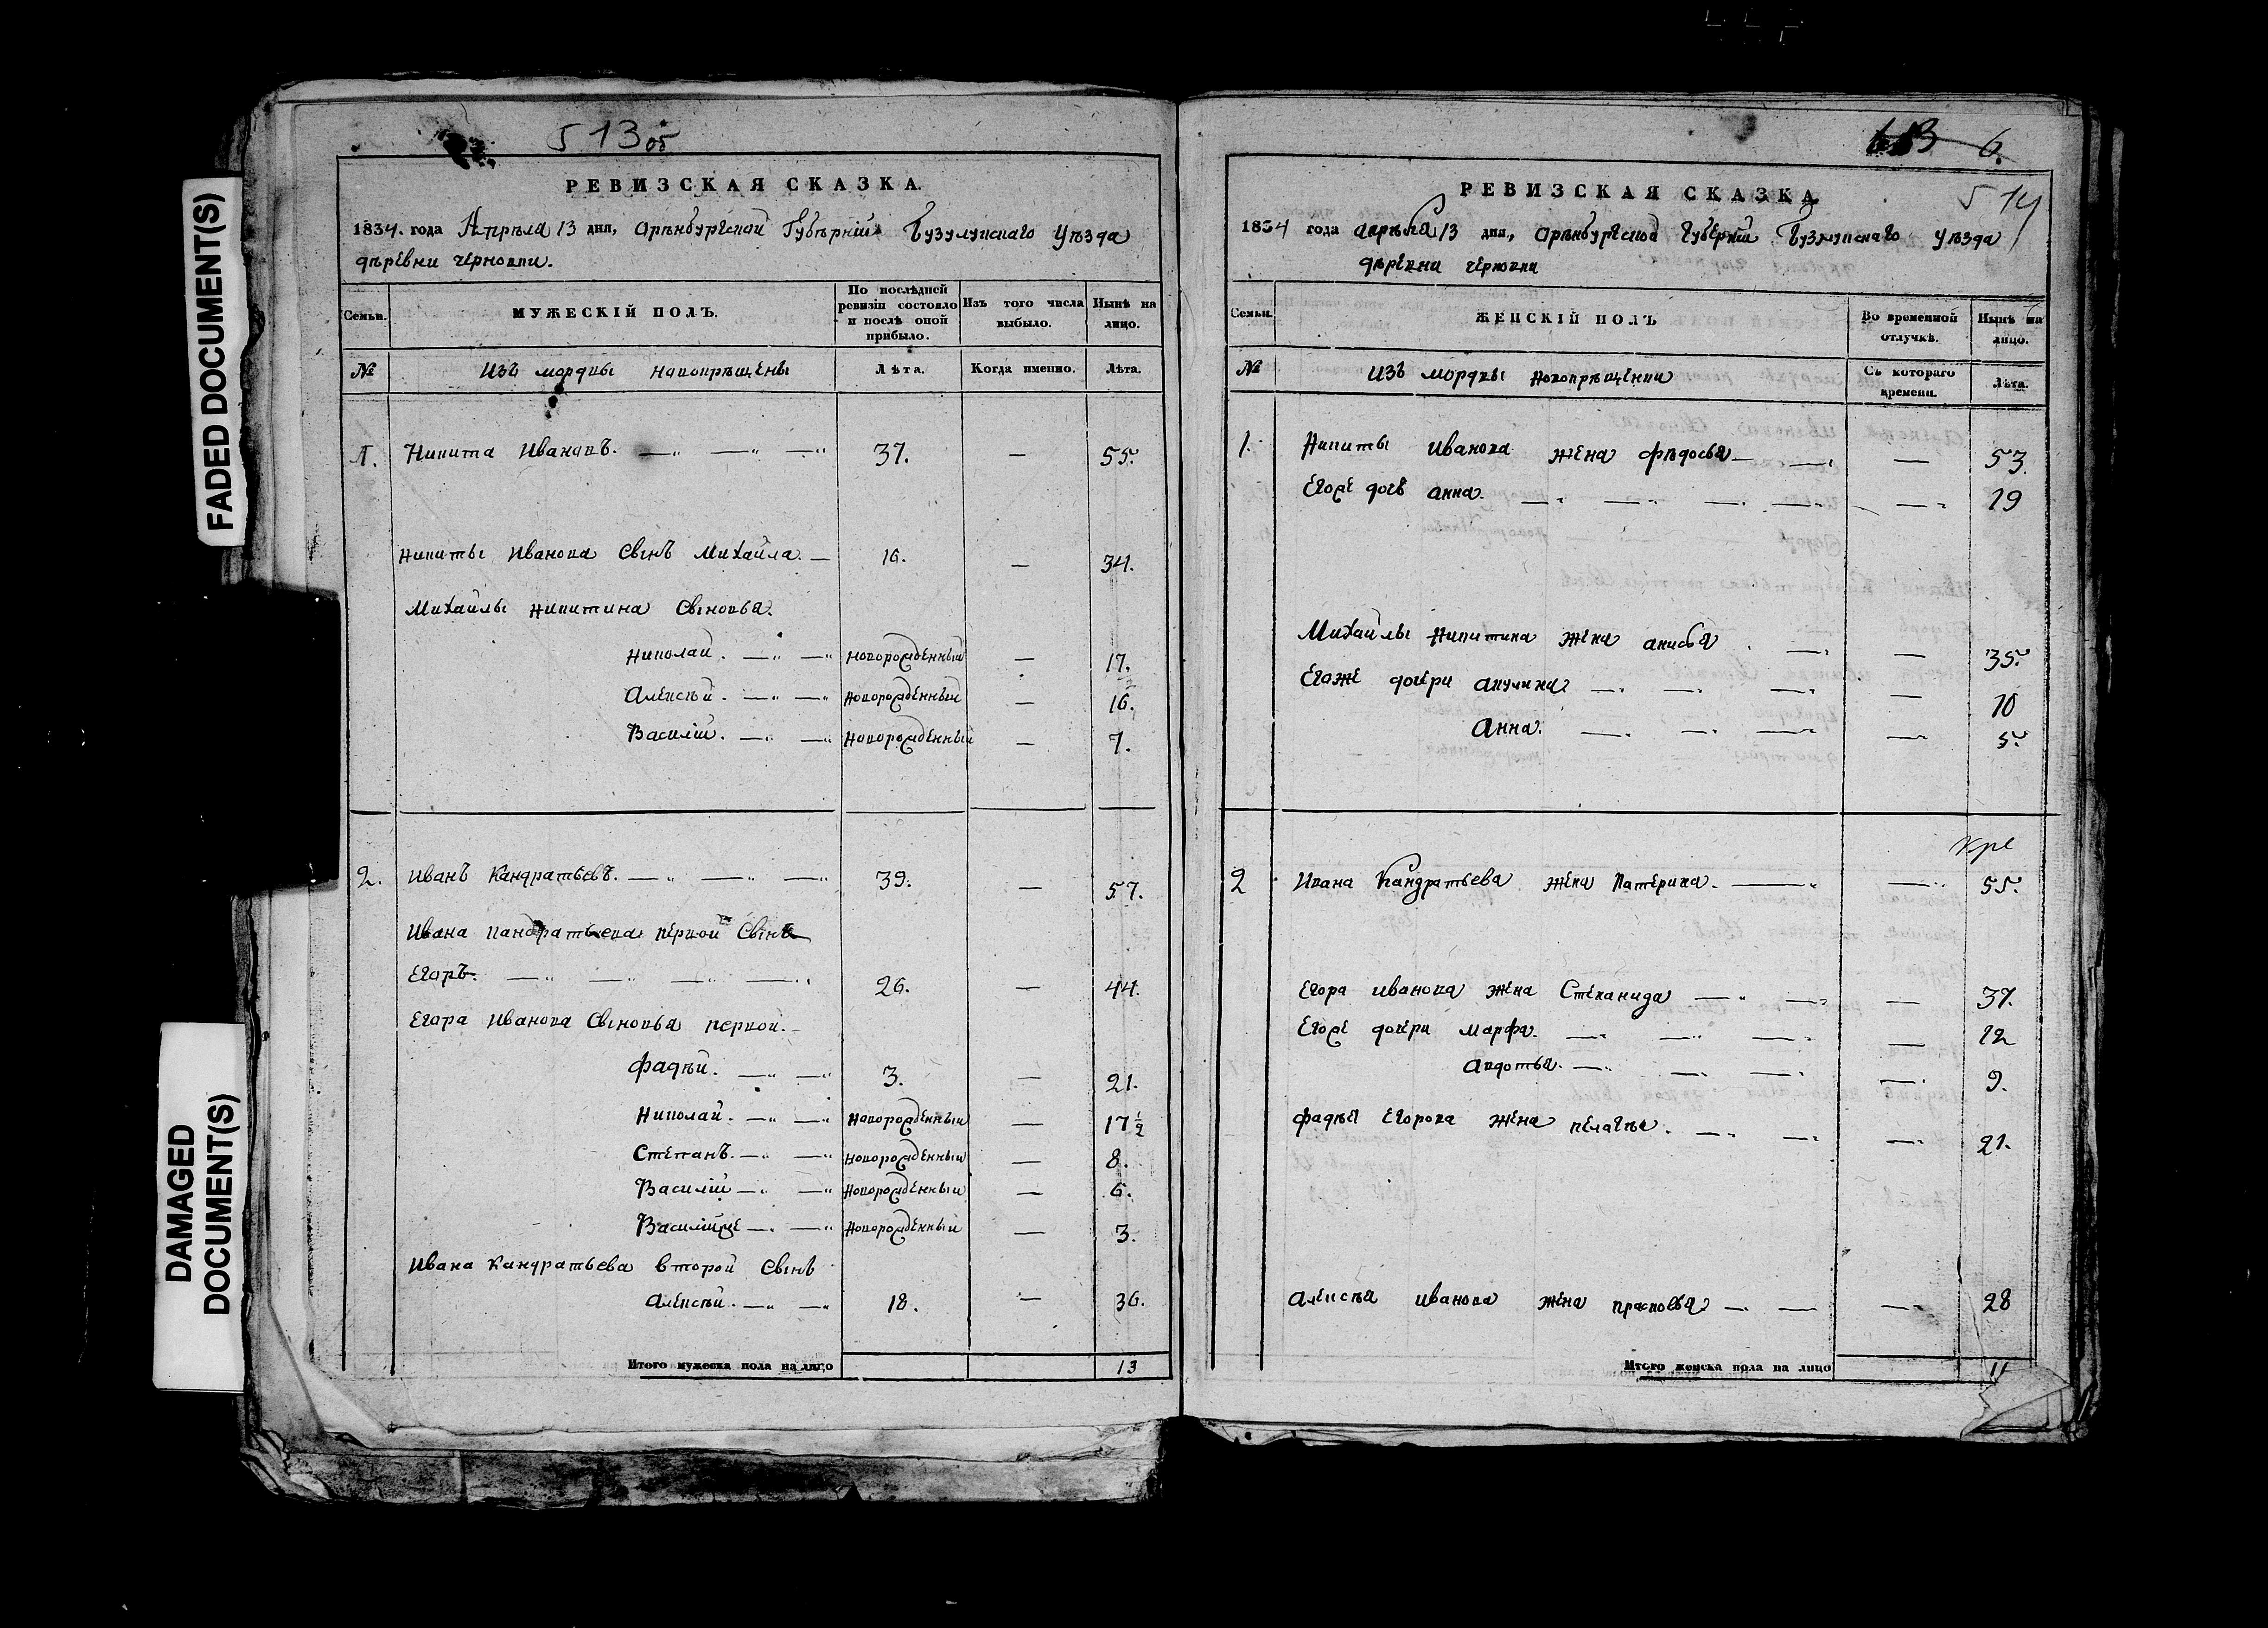 FADED DOCUMENT(S)
DAMAGED DOCUMENT(S)
513об
РЕВИЗСКАЯ СКАЗКА.
1834. года Апрѣла 13 дня, Орѣнбургской Губѣрнiи Бузулукскаго Уѣзда
дѣрѣвни чѣрновки.
Семьи. МУЖЕСКІЙ ПОЛЪ. По послѣдней ревизіи состояло и послѣ оной прибыло. Изъ того числа выбыло. Нынѣ на лицо.
№ Изъ мордвы новокрѣщены Лѣта. Когда именно. Лѣта.
1. Никита Ивановъ. 37. — 55.
Никиты Иванова Сынъ Михайла. — 16. — 34.
Михайлы Никитина Сыновья.
Николай. новорожденный — 17.
Алексѣй. новорожденный — 16.
Василiй. новорожденный — 7.
2. Иванъ Кандратьевъ. 39. — 57.
Ивана Кандратьева первой Сынъ
Егоръ. 26. — 44.
Егора Иванова Сыновья первой.
Фадѣй. 3. — 21.
Николай. новорожденный — 17 1/2
Степанъ. новорожденный — 8.
Василiй новорожденный — 6.
Василiйже новорожденный — 3.
Ивана Кандратьева второй Сынъ
Алексѣй. 18. — 36.
Итого мужеска пола на лицо 13
6.
514
РЕВИЗСКАЯ СКАЗКА
1834 года апрѣла 13 дня, Орѣнбургской Губернiи Бузулукскаго Уѣзда
дѣревни чѣрновки
Семьи. ЖЕНСКІЙ ПОЛЪ Во временной отлучкѣ. Нынѣ на лицо.
№ Изъ мордвы новокрѣщенки Съ котораго времени. Лѣта.
1. Никиты Иванова жена Фѣдосья — 53.
Егоже дочь анна. — 19
Михайлы Никитина жена анисья — 35.
Егоже дочери акулина — 10
Анна. — 5.
Кре
2 Ивана Кандратьева жена Катерина. — 55.
Егора Иванова жена Стеканида — 37.
Егоже дочери марфа. — 12
авдотья. — 9.
Фадѣя Егорова жена пелагѣя. — 21.
Алексѣя Иванова жена прасковья — 28
Итого женска пола на лицо 11